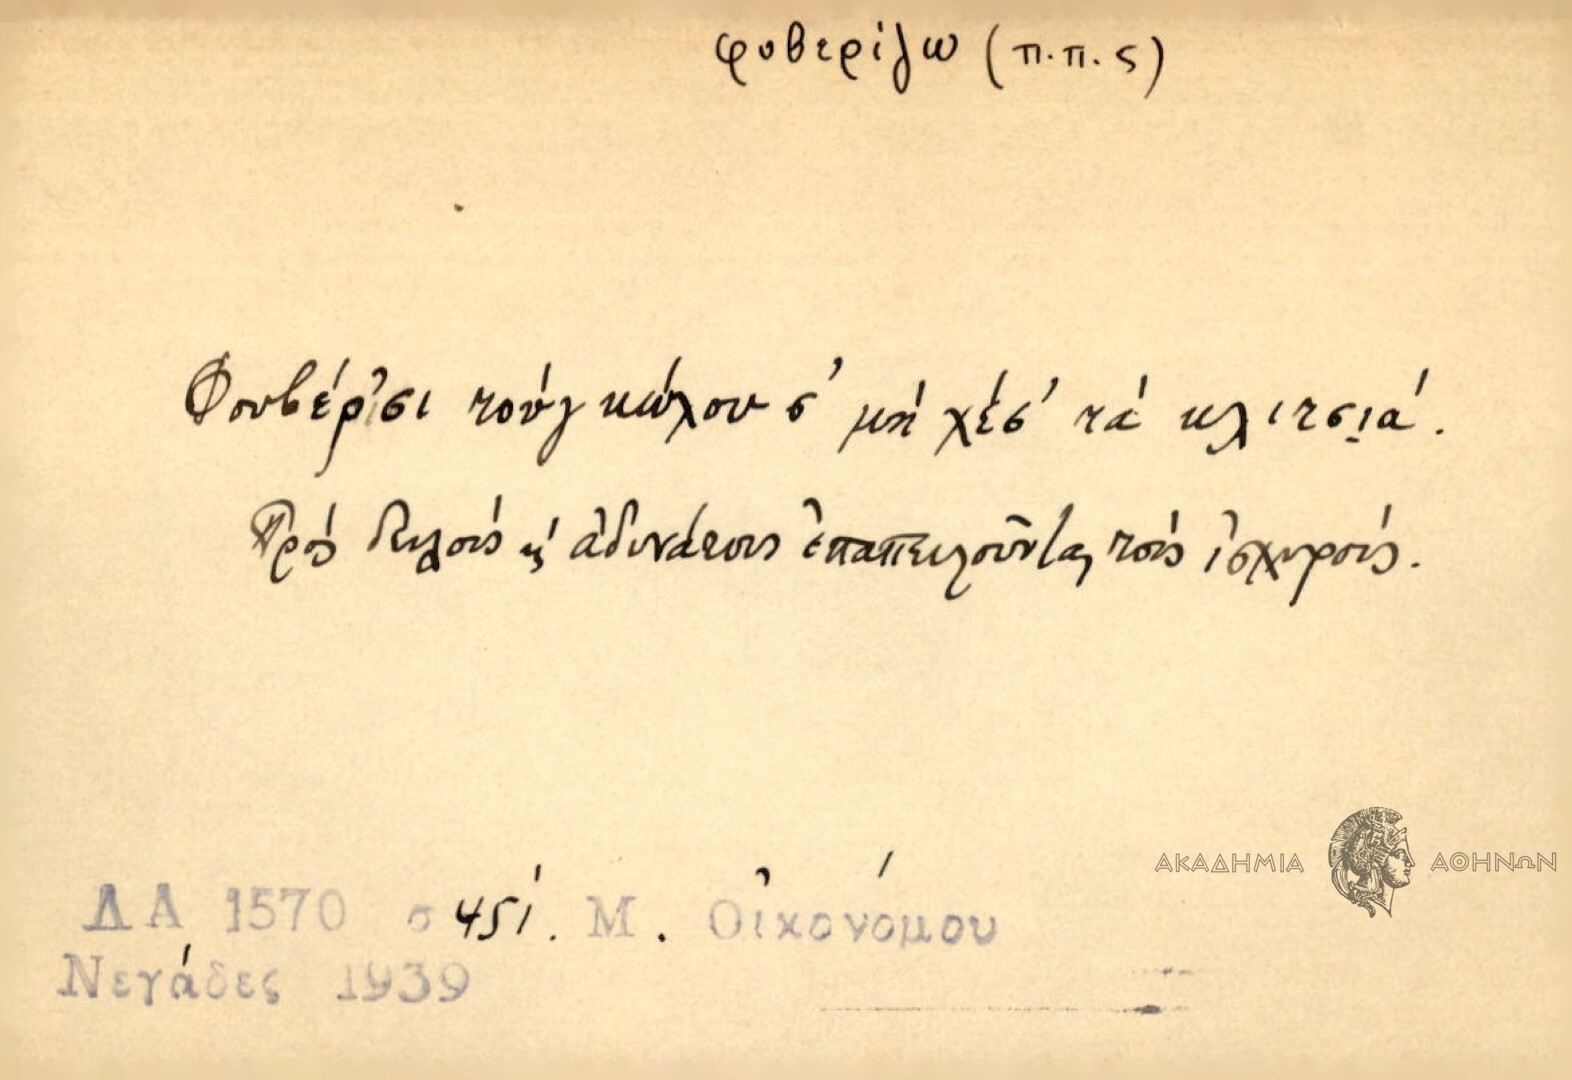 φοβερίζω (π.π. ς)
Φουβέρ'σι τούγ κώλου σ' μή χέσ' τά κλιτσιά.
Πρός δειλούς κ' ἀδυνάτους ἐπαπειλοῦντας τούς ἰσχυρούς.
ΑΚΑΔΗΜΙΑ ΑΘΗΝΩΝ
ΔΑ 1570 σ 451. Μ. Οἰκονόμου
Νεγάδες 1939